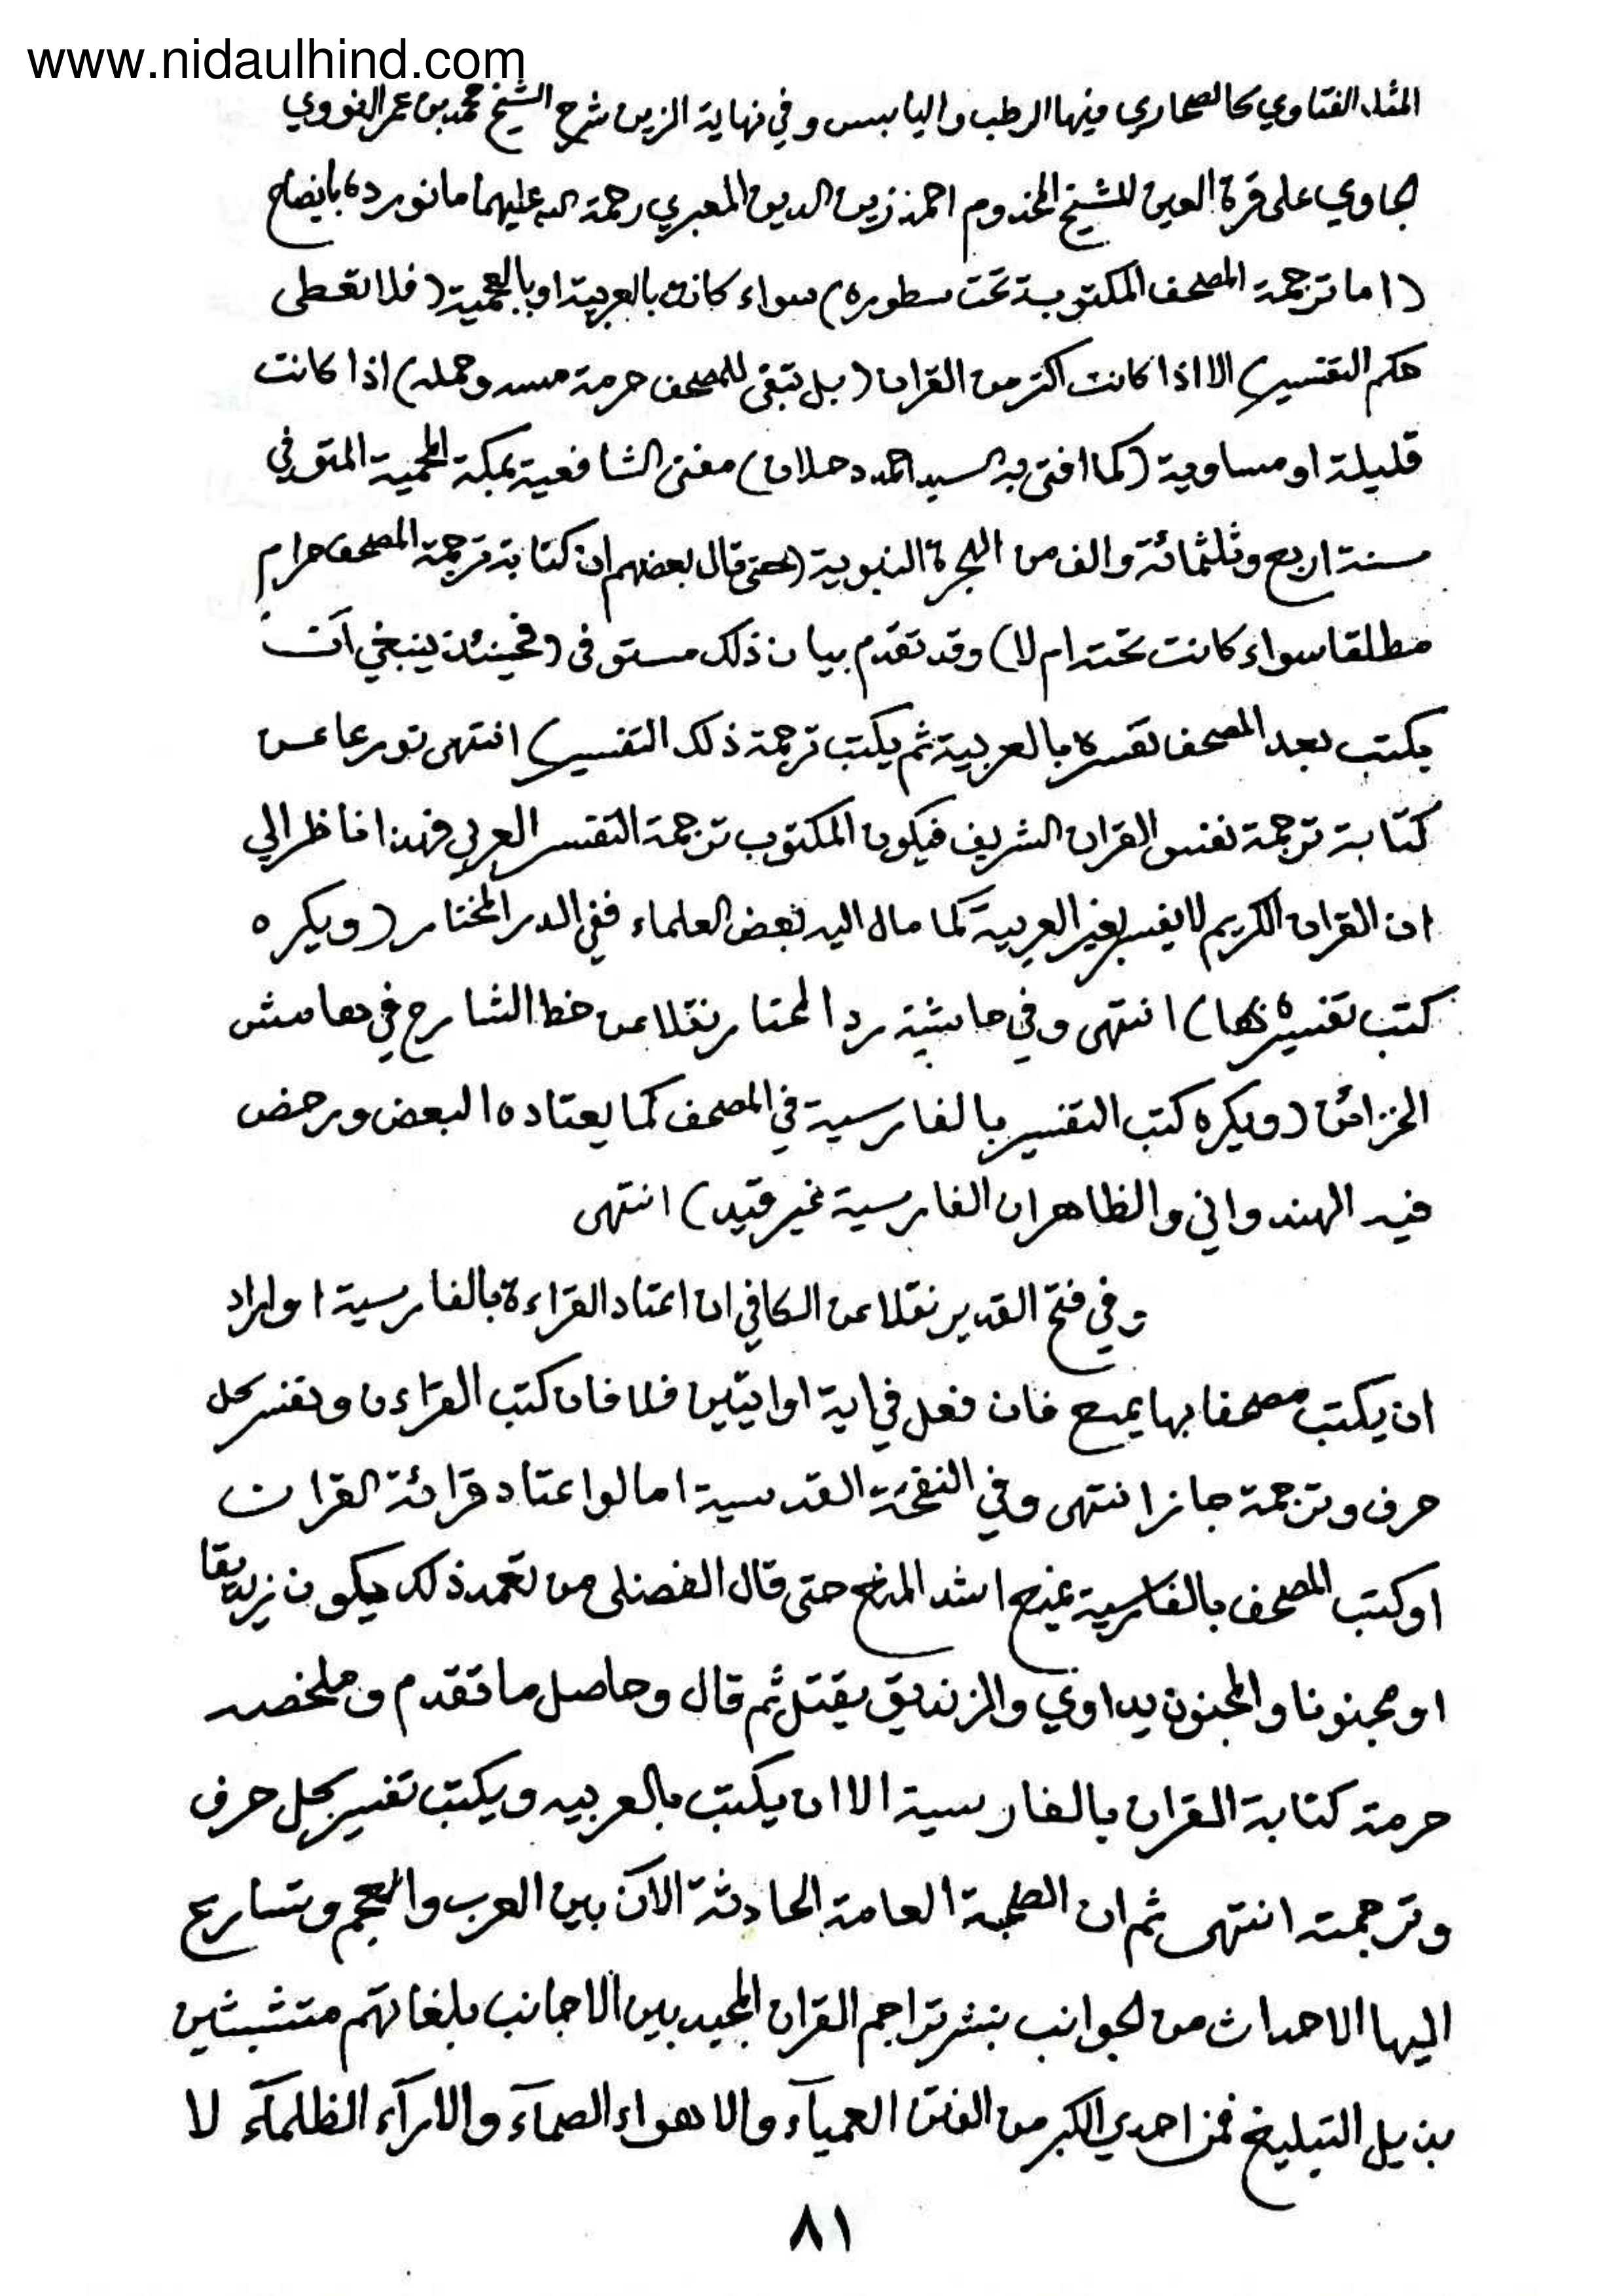 www.nidaulhind.com
المثل الفتاوي كالصحاري فيها الرطب واليابس وفي نهاية الزين شرح الشيخ محمد بن عمر النووي
الجاوي على قرة العين للشيخ المخدوم احمد زين الدين المعبري رحمة الله عليهما ما نورده بايضاح
(اما ترجمة المصحف المكتوبة تحت سطوره) سواء كانت بالعربية او بالعجمية (فلا تعطى
حكم التفسير) الا اذا كانت اكثر من القران (بل تبقى للمصحف حرمة مسه وحمله) اذا كانت
قليلة او مساوية (كما افتى به السيد احمد دحلان) مفتى الشافعية بمكة المحمية المتوفي
سنة اربع وثلثمائة والف من الهجرة النبوية (حتى قال بعضهم ان كتابة ترجمة المصحف حرام
مطلقا سواء كانت تحته ام لا) وقد تقدم بيان ذلك مستوفى (فحينئذ ينبغي ان
يكتب بعد المصحف تفسيره بالعربية ثم يكتب ترجمة ذلك التفسير) انتهى تورعا عن
كتابة ترجمة نفس القران الشريف فيكون المكتوب ترجمة التفسير العربي فهذا ناظر الي
ان القران الكريم لا يفسر بغير العربية كما مال اليه بعض العلماء ففي الدر المختار (ويكره
كتب تفسيره بها) انتهى وفي حاشية رد المحتار نقلا عن خط الشارح في هامش
الخزائن (ويكره كتب التفسير بالفارسية في المصحف كما يعتاده البعض ورخص
فيه الهندواني والظاهر ان الفارسية غير قيد) انتهى
وفي فتح القدير نقلا عن الكافي ان اعتاد القراءة بالفارسية او اراد
ان يكتب مصحفا بها يمنع فان فعل في اية او ايتين فلا فان كتب القراءن وتفسير كل
حرف وترجمة جاز انتهى وفي النفحة القدسية اما لو اعتاد قرائة القران
او كتب المصحف بالفارسية يمنع اشد المنع حتى قال الفضلي من تعمد ذلك يكون زنديقا
او مجنونا والمجنون يداوي والزنديق يقتل ثم قال وحاصل ما تقدم وملخصه
حرمة كتابة القران بالفارسية الا ان يكتب بالعربيه ويكتب تفسير كل حرف
وترجمته انتهى ثم ان العامة الحادثة الآن بين العرب والعجم وتسارع
اليها الاحداث من الجوانب بنشر تراجم القران المجيد بين الاجانب بلغاتهم متشبثين
بذيل التبليغ فمن احدي الكبر من الفتن العمياء والاهواء الصماء والاراء الظلماء لا
٨١